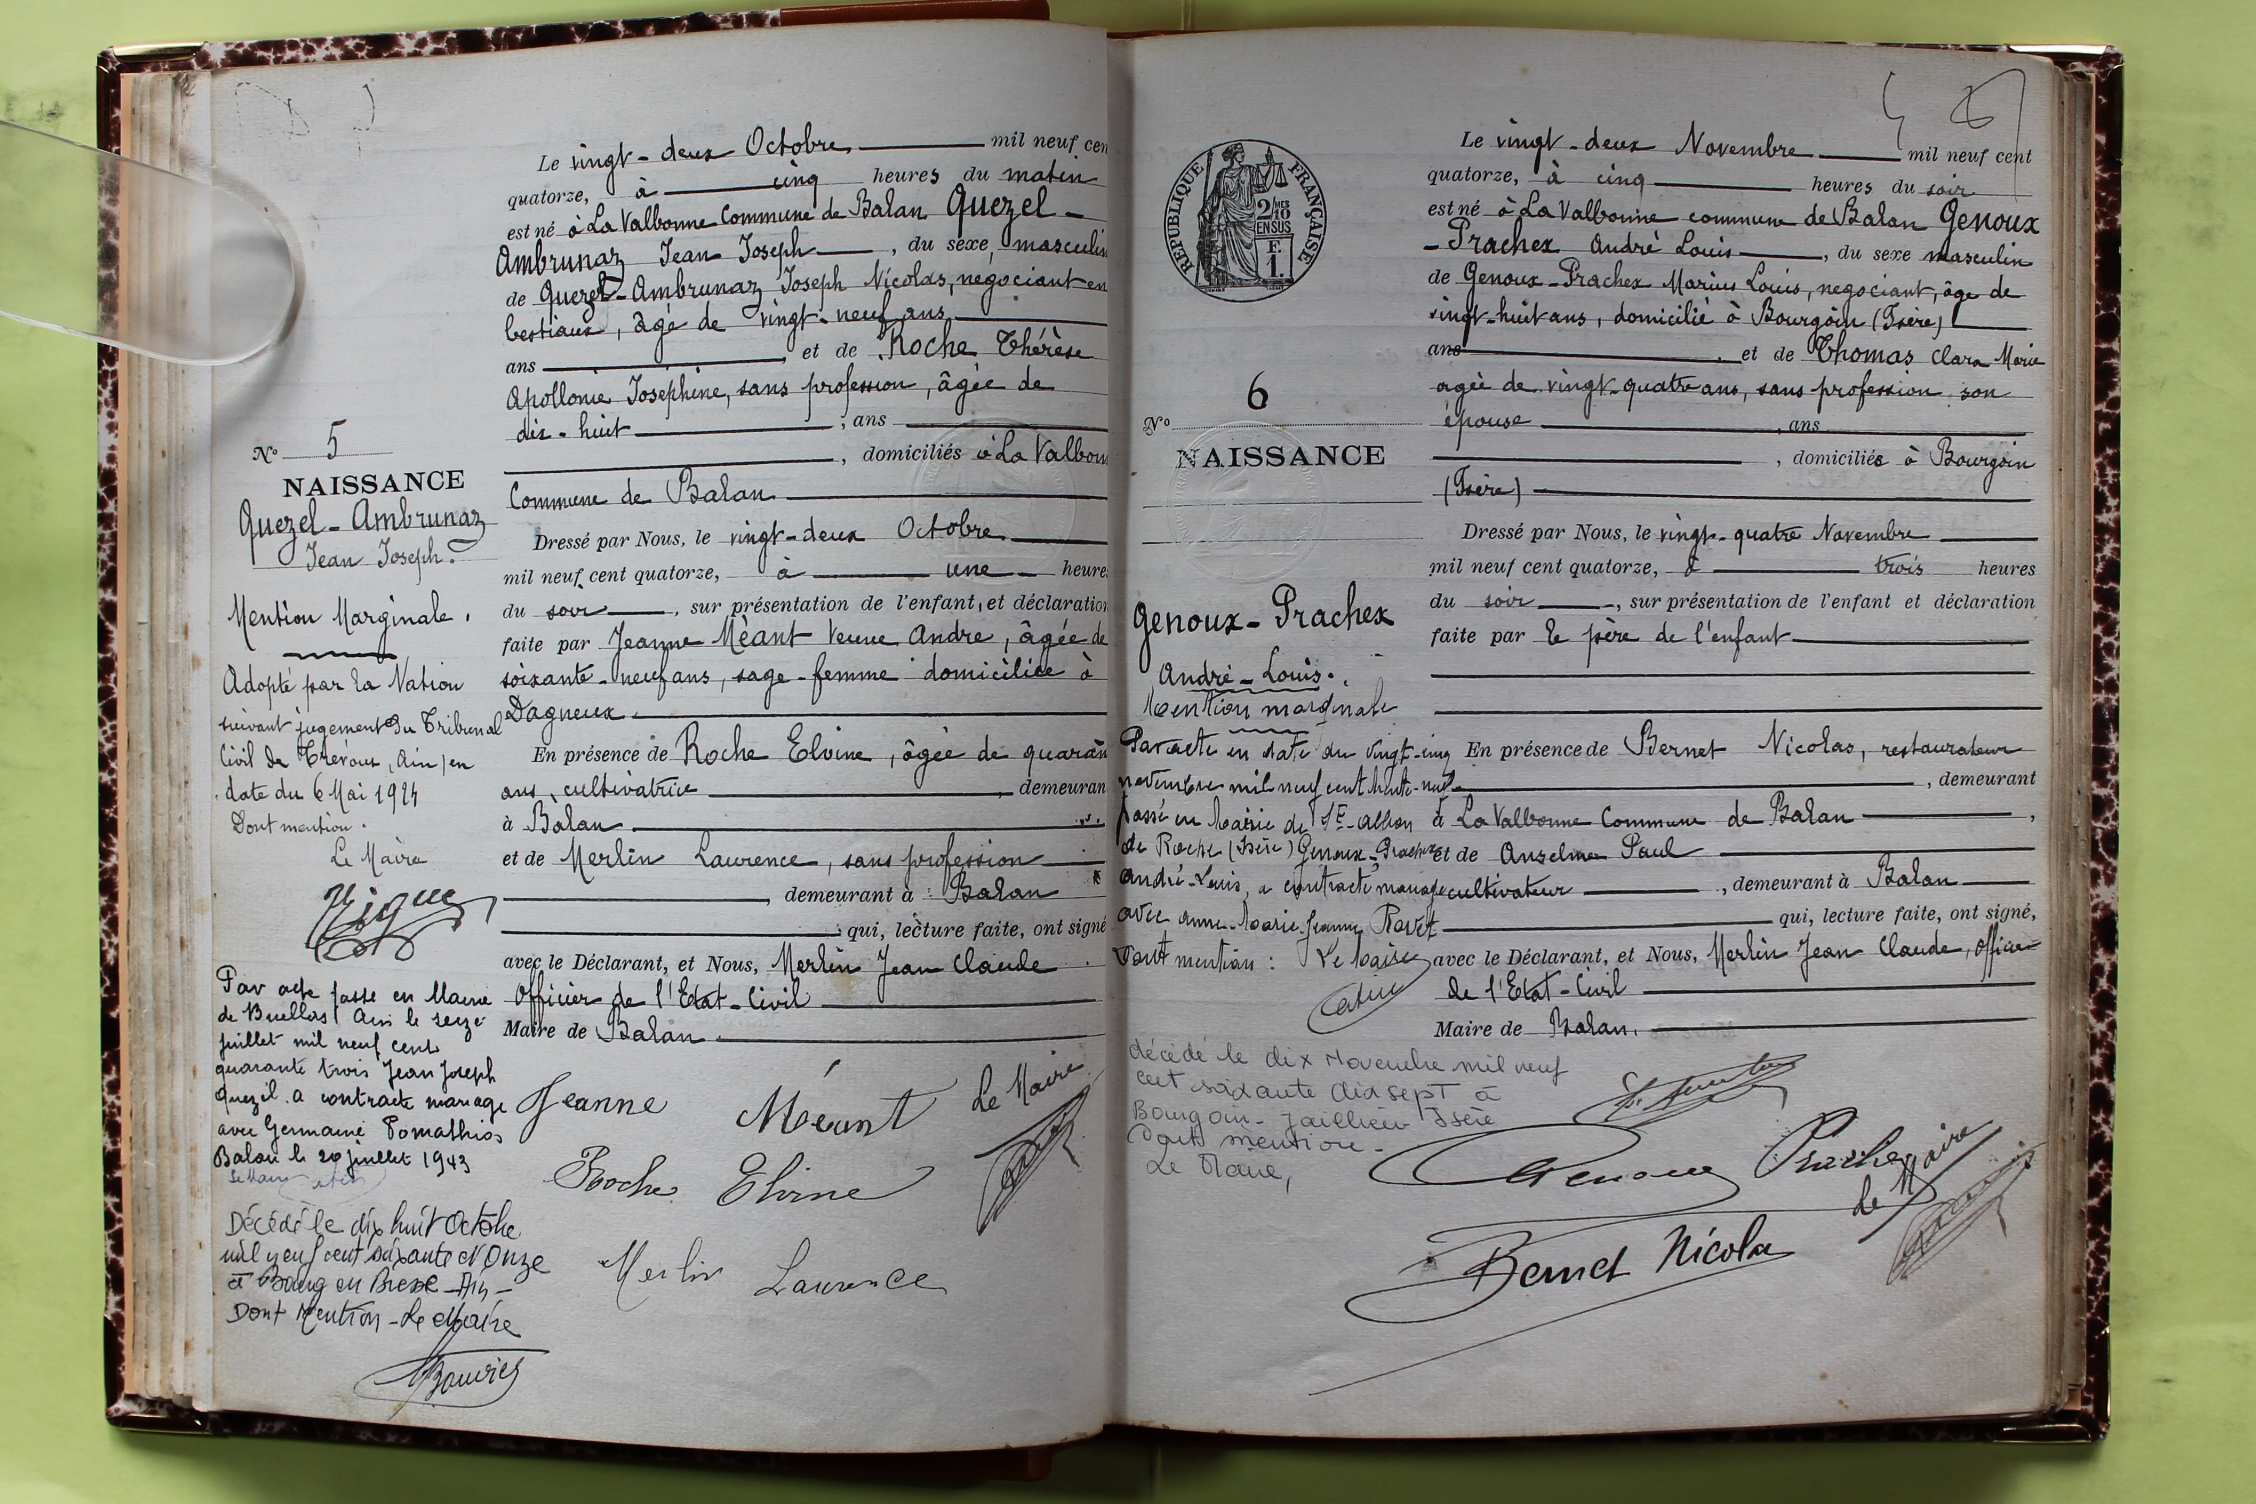 Le vingt-deux Octobre mil neuf cen
quatorze, à cinq heures du matin
est né à La Valbonne Commune de Balan Quezel-
Ambrunaz Jean Joseph, du sexe masculin
de Quezel-Ambrunaz Joseph Nicolas, négociant en
bestiaux, âgé de vingt-neuf ans
ans et de Roche Thérèse
Apollonie Joséphine, sans profession, âgée de
dix-huit ; ans
, domiciliés à La Valbonn
Commune de Balan
Dressé par Nous, le vingt-deux Octobre
mil neuf cent quatorze, à une heures
du soir, sur présentation de l'enfant, et déclaration
faite par Jeanne Méant Veuve André, âgée de
soixante-neuf ans, sage-femme domiciliée à
Dagneux.
En présence de Roche Elvine, âgée de quaran
ans, cultivatrice, demeuran
à Balan
et de Merlin Laurence, sans profession
, demeurant à Balan
qui, lecture faite, ont signé
avec le Déclarant, et Nous, Merlin Jean Claude
Officier de l'Etat-Civil
Maire de Balan.
Jeanne Méant Le Maire
Roche Elvine
Merlin Laurence
N° 5
NAISSANCE
Quezel-Ambrunaz
Jean Joseph.
Mention Marginale.
Adopté par la Nation
suivant jugement du Tribunal
Civil de Trévoux (Ain) en
date du 6 Mai 1924
Dont mention.
Le Maire
Par acte passé en Mairie
de Buellas Ain le seize
juillet mil neuf cent
quarante trois Jean Joseph
Quezel a contracté mariage
avec Germaine Pomathios
Balan le 20 juillet 1943
Le Maire
Décédé le dix huit Octobre
mil neuf cent soixante et Onze
à Bourg en Bresse - Ain -
Dont Mention - Le Maire
Le vingt-deux Novembre mil neuf cent
quatorze, à cinq heures du soir
est né à La Valbonne commune de Balan Genoux
-Prachex André Louis, du sexe masculin
de Genoux-Prachex Marius Louis, négociant, âgé de
vingt-huit ans, domicilié à Bourgoin (Isère)
ans, et de Thomas Clara Marie
agée de vingt-quatre ans, sans profession son
épouse, ans
, domiciliés à Bourgoin
(Isère)
Dressé par Nous, le vingt-quatre Novembre
mil neuf cent quatorze, à trois heures
du soir, sur présentation de l'enfant et déclaration
faite par le père de l'enfant
En présence de Bernet Nicolas, restaurateur
, demeurant
à La Valbonne Commune de Balan,
et de Anselme Paul
cultivateur, demeurant à Balan
qui, lecture faite, ont signé,
avec le Déclarant, et Nous, Merlin Jean Claude, Officier
de l'Etat-Civil
Maire de Balan.
Genoux Prachex
Le Maire
Bernet Nicolas
RÉPUBLIQUE FRANÇAISE
2/10 MES
EN SUS
F.
1.
N° 6
NAISSANCE
Genoux-Prachex
André-Louis.
Mention marginale
Par acte en date du vingt-cinq
novembre mil neuf cent trente-neuf
passé en Mairie de St-Alban
de Roche (Isère) Genoux-Prachex
André-Louis, a contracté mariage
avec Anne-Marie Jeanne Ravet
Dont mention : Le Maire
décédé le dix Novembre mil neuf
cent soixante dix sept à
Bourgoin-Jallieu Isère
Dont mention -
Le Maire,